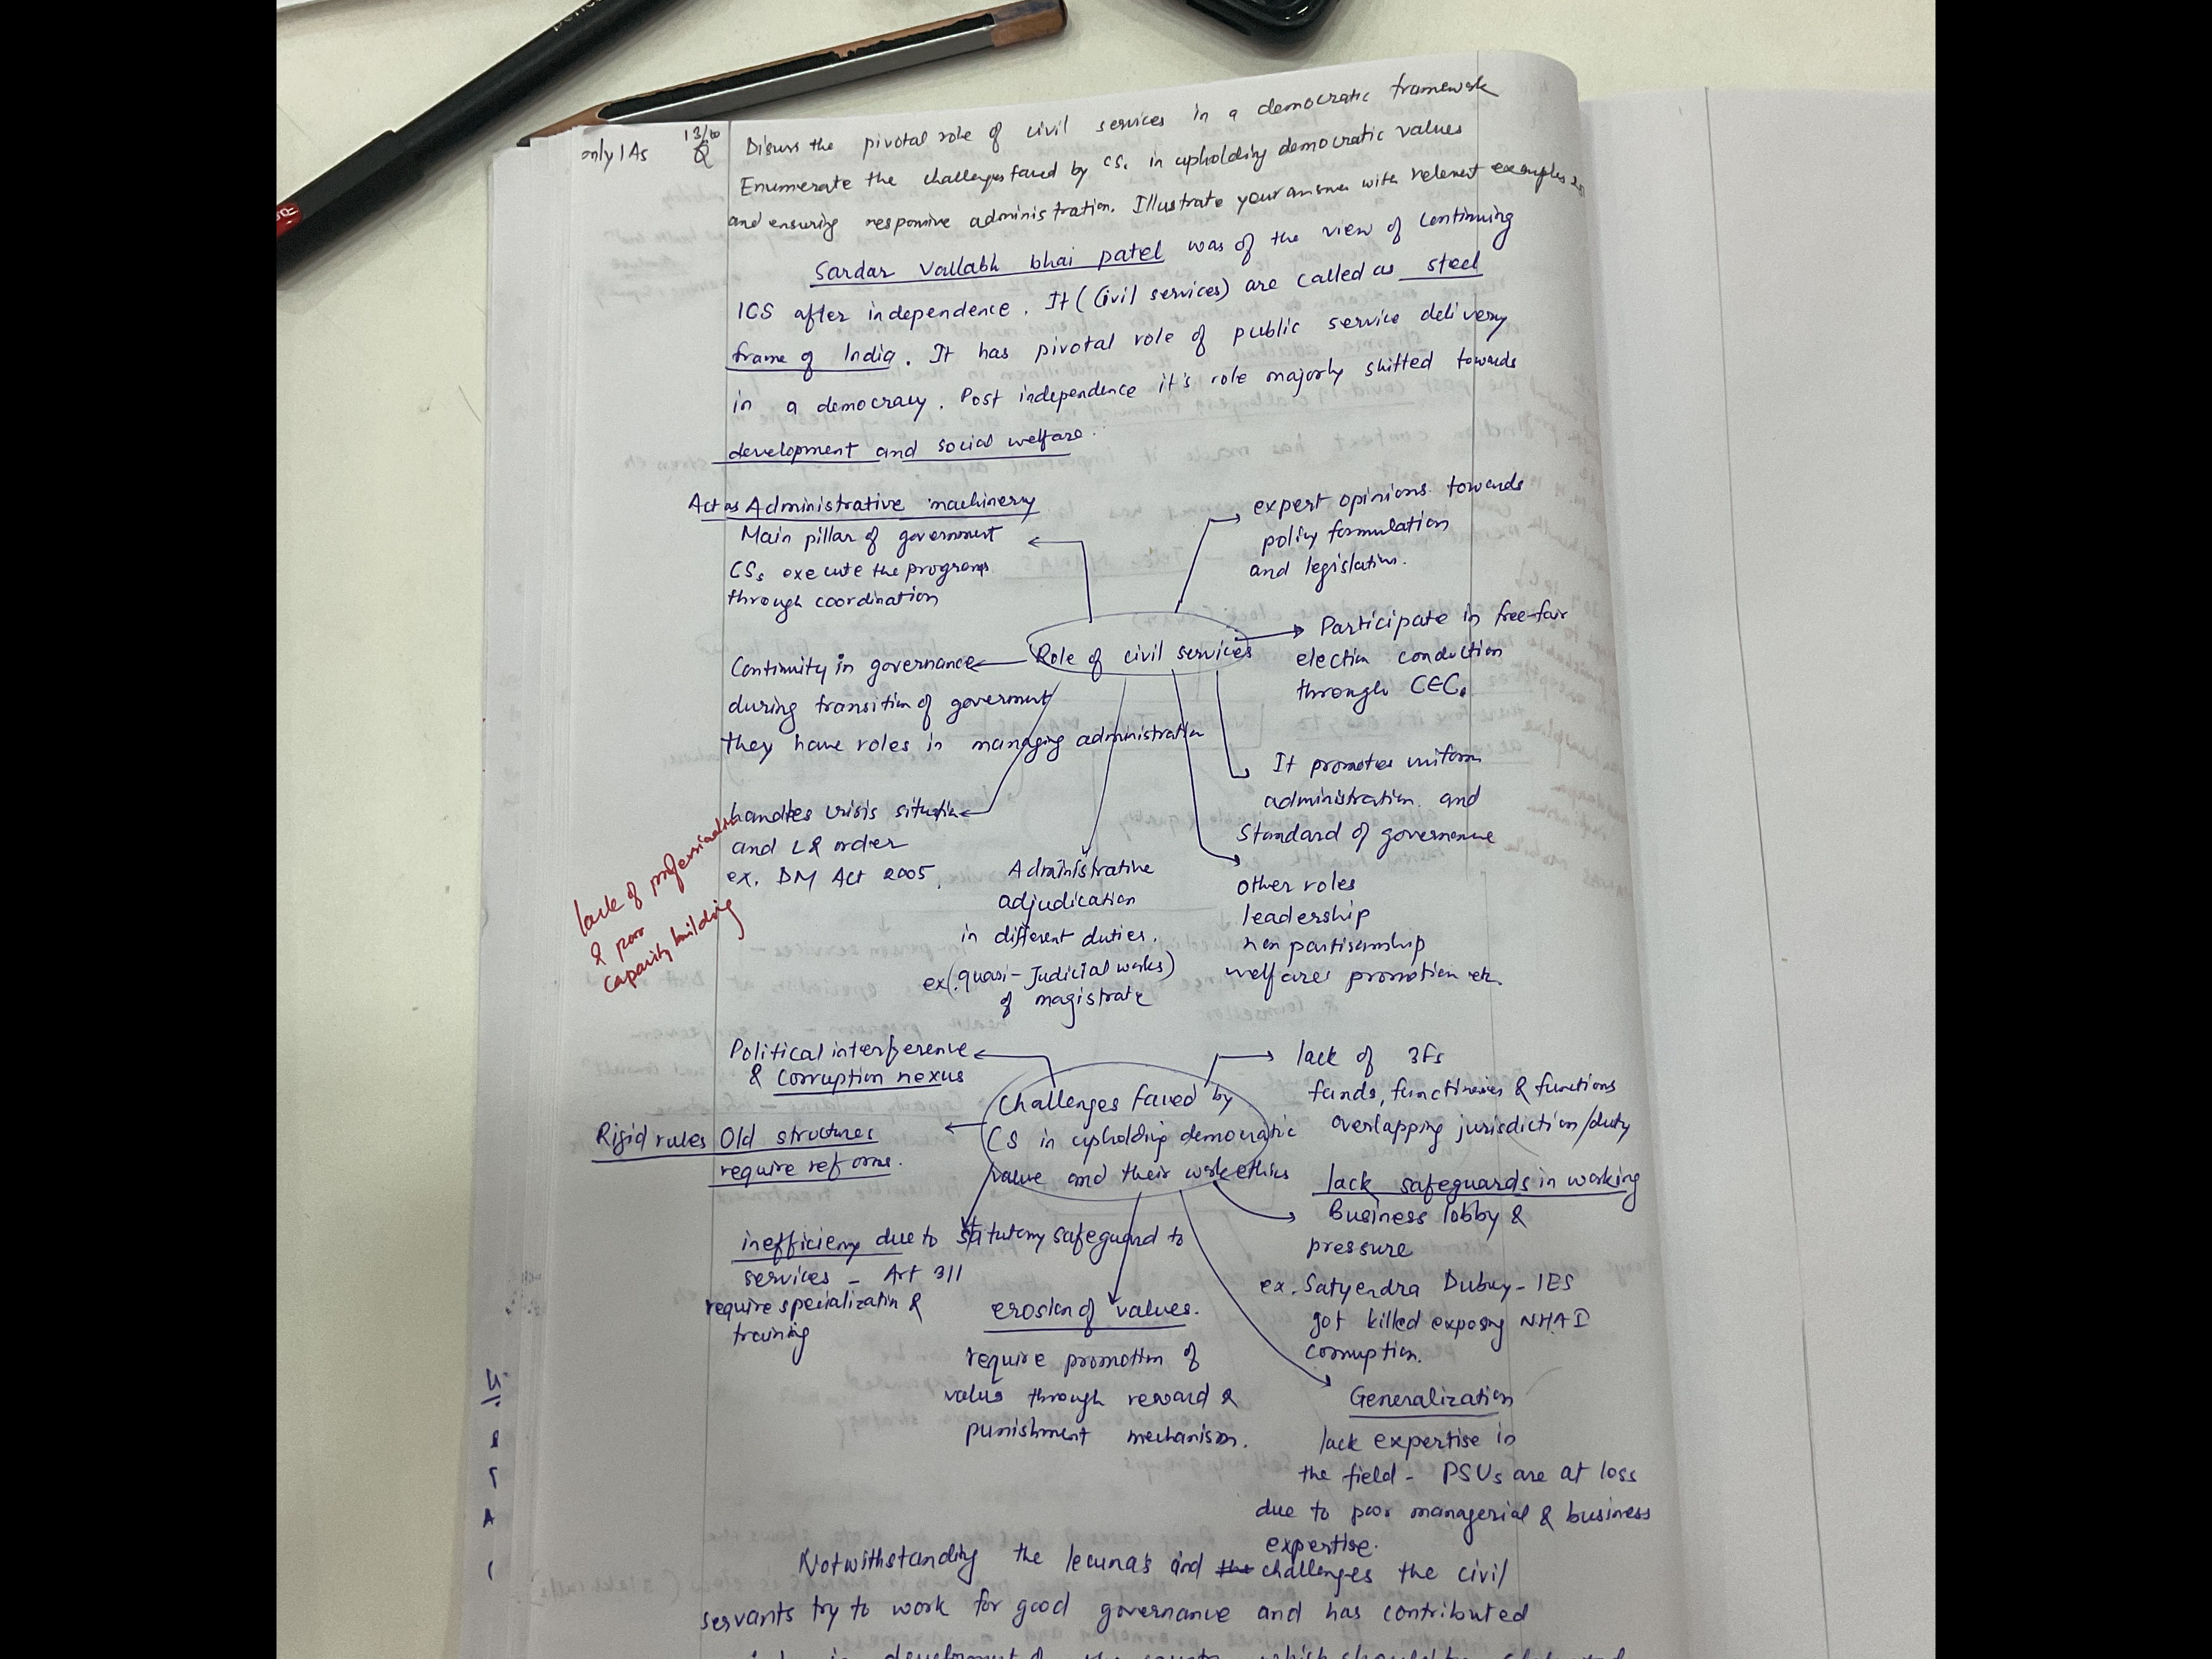 only IAs
13/10
Q
Discuss the pivotal role of civil services in a democratic framework
Enumerate the challenges faced by CSs in upholding democratic values
and ensuring responsive administration. Illustrate your answer with relevent examples
Sardar Vallabh bhai patel was of the view of continuing
ICS after independence. It (Civil services) are called as steel
frame of India. It has pivotal role of public service delivery
in a democracy. Post independence it's role majorly shifted towards
development and social welfare.
Act as Administrative machinery
Main pillar of government
CSs execute the programs
through coordination
expert opinions towards
policy formulation
and legislation.
Role of civil services
Participate in free-fair
election conduction
through CEC.
Continuity in governance
during transition of government
they have roles in managing administration
It promotes uniform
administration and
standard of governance
handles crisis situation
and L& order
ex. DM Act 2005
lack of professionalism
& poor
capacity building
Administrative
adjudication
in different duties.
ex(.quasi-Judicial works)
of magistrate
other roles
leadership
non partisanship
welfares promotion etc.
Political interference
& corruption nexus
lack of 3Fs
funds, functineries & functions
overlapping jurisdiction/duty
Challenges faced by
CS in upholding democratic
value and their work ethics
Rigid rules Old structures
require reforms.
lack safeguards in working
Business lobby &
pressure
ex. Satyendra Dubey - IES
got killed exposing NHAI
corruption.
inefficieny due to statutory safeguard to
services - Art 311
require specialization &
training
erosion of values.
require promotion of
value through reward &
punishment mechanism.
Generalization
lack expertise in
the field - PSUs are at loss
due to poor managerial & business
expertise.
Notwithstanding the lecuna's and the challenges the civil
servants try to work for good governance and has contributed
development of the country which should be